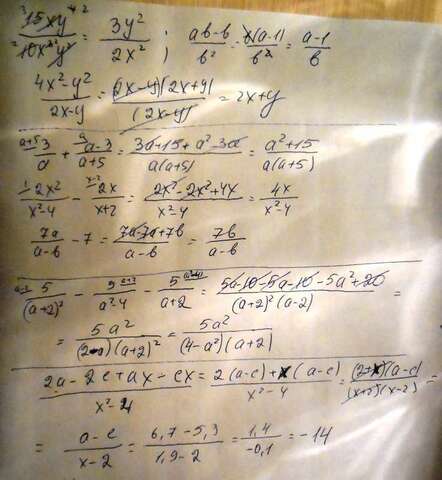 15xy⁴ ² / 10x³y² = 3y² / 2x² ; ab-b / b² = b(a-1) / b² = a-1 / b
4x²-y² / 2x-y = (2x-y)(2x+y) / (2x-y) = 2x+y
a+5 3 / a + a a-3 / a+5 = 3a+15+a²-3a / a(a+5) = a²+15 / a(a+5)
1 2x² / x²-4 - x-2 2x / x+2 = 2x²-2x²+4x / x²-4 = 4x / x²-4
7a / a-b - 7 = 7a-7a+7b / a-b = 7b / a-b
a-2 5 / (a+2)² - 5 a+2 / a²-4 - 5 a²-4 / a+2 = 5a-10-5a-10-5a²+20 / (a+2)²(a-2) =
= 5a² / (2-a)(a+2)² = 5a² / (4-a²)(a+2)
2a-2c+ax-cx / x²-4 = 2(a-c)+x(a-c) / x²-4 = (2+x)(a-c) / (x+2)(x-2) =
= a-c / x-2 = 6,7-5,3 / 1,9-2 = 1,4 / -0,1 = -14